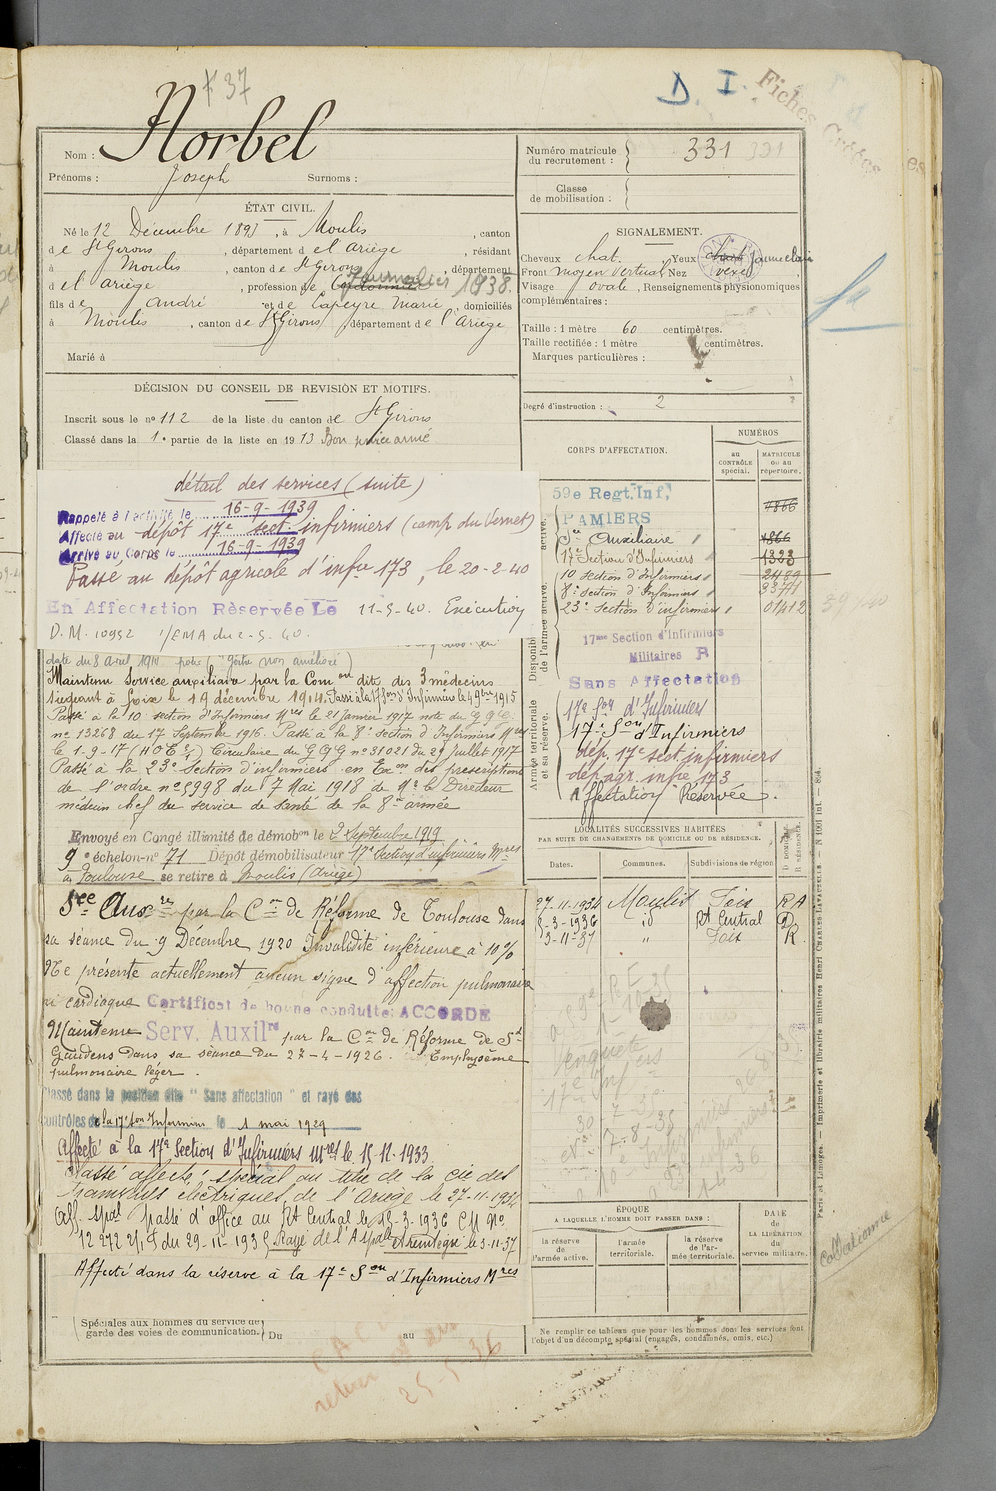 37
D. I.
Fiches
Nom : Norbel
Prénoms : Joseph Surnoms :
Numéro matricule du recrutement : 331 331
Classe de mobilisation :
ÉTAT CIVIL.
Né le 12 Décembre 1893, à Moulis, canton
de St Girons, département de l'Ariège, résidant
à Moulis, canton de St Girons, département
de l'Ariège, profession de Journalier 1938.
fils de André et de Lapeyre Marie, domiciliés
à Moulis, canton de St Girons, département de l'Ariège
Marié à
SIGNALEMENT.
Cheveux chat. Yeux jaune clair
Front moyen vertical Nez vexe
Visage ovale, Renseignements physionomiques
complémentaires :
Taille : 1 mètre 60 centimètres.
Taille rectifiée : 1 mètre centimètres.
Marques particulières :
Degré d'instruction : 2
DÉCISION DU CONSEIL DE REVISION ET MOTIFS.
Inscrit sous le n° 112 de la liste du canton de St Girons
Classé dans la 1e partie de la liste en 1913 Bon service armé
détail des services (suite)
Rappelé à l'activité le 16-9-1939
Affecté au dépôt 17e sect. infirmiers (camp du Vernet)
Arrivé au Corps le 16-9-1939
Passé au dépôt agricole d'infie 173, le 20-2-40
En Affectation Rèservée Le 11-5-40. Exécution
D.M. 10952 1/EMA du 2-5-40.
date du 8 avril 1914 (goitre non amélioré)
Maintenu service auxiliaire par la Comon dite des 3 médecins
siégeant à Foix le 19 décembre 1914. Passé à la 17 Son d'Infirmiers le 4 9bre 1915
Passé à la 10 section d'Infirmiers Mres le 21 Janvier 1917 note du G Q G
n° 13268 du 17 Septembre 1916. Passé à la 8e section d'Infirmiers Mres
le 1-9-17 (HOE) Circulaire du G Q G n° 31021 du 29 Juillet 1917
Passé à la 23e Section d'infirmiers en Exon des prescriptions
de l'ordre n° 5998 du 7 Mai 1918 de Mr le Directeur
médecin chef du service de santé de la 8e armée
Envoyé en Congé illimité de démobon le 2 Septembre 1919
9e échelon n° 71 Dépôt démobilisateur 17e Section d'infirmiers Mres
à Toulouse se retire à Moulis (Ariège)
Sce Auxre par la Con de Réforme de Toulouse dans
sa séance du 9 Décembre 1920 Invalidité inférieure à 10 %
Ne présente actuellement aucun signe d'affection pulmonaire
ni cardiaque Certificat de bonne conduite ACCORDÉ
Maintenu Serv. Auxilre par la Con de Réforme de St
Gaudens dans sa séance du 27-4-1926. Emphysème
pulmonaire léger.
Classé dans la position dite "Sans affectation" et rayé des
contrôles de la 17e Son Infirmiers le 1 mai 1929
Affecté à la 17e Section d'Infirmiers Mres le 15-12-1933
Classé affecté spécial au titre de la cie des
tramways électriques de l'Ariège le 27-11-1934
Aff. spal passé d'office au Rt Central le 5-3-1936 CM N°
12272 2/1 du 29-11-1935 Rayé de l'A spale et réintégré le 3-11-37
Affecté dans la réserve à la 17e Son d'Infirmiers Mres
Spéciales aux hommes du service de garde des voies de communication. Du au
25-5-36
CORPS D'AFFECTATION.
NUMÉROS
au CONTRÔLE spécial.
MATRICULE ou au répertoire.
59e Regt. Inf. 4866
PAMIERS
Sce Auxiliaire 4866
17e Section d'Infirmiers 1323
10 Section d'Infirmiers 2489
8e Section d'Infirmiers 33771
23e Section d'infirmiers 01412
17me Section d'Infirmiers
Militaires R
Sans Affectation
17e Son d'Infirmiers
17e Son d'Infirmiers
dép. 17e sect. infirmiers
dép. agr. infie 173
Affectation Réservée.
LOCALITÉS SUCCESSIVES HABITÉES
PAR SUITE DE CHANGEMENTS DE DOMICILE OU DE RÉSIDENCE.
Dates. Communes. Subdivisions de région D. DOMICILE R. RÉSIDENCE.
27-11-1934 Moulis Foix RA
5-3-1936 id Rt Central D
3-11-37 " Foix R
ÉPOQUE
A LAQUELLE L'HOMME DOIT PASSER DANS :
la réserve de l'armée active.
l'armée territoriale.
la réserve de l'armée territoriale.
DATE DE LA LIBÉRATION du service militaire.
Ne remplir ce tableau que pour les hommes dont les services font
l'objet d'un décompte spécial (engagés, condamnés, omis, etc.)
Collationné
Paris et Limoges. — Imprimerie et librairie militaires Henri CHARLES-LAVAUZELLE.